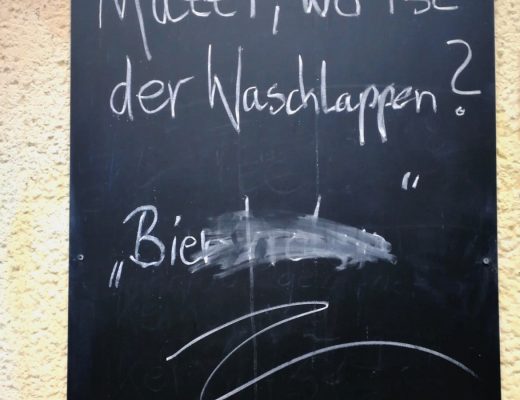 Mutti, wo ist
der Waschlappen?
„Bier “